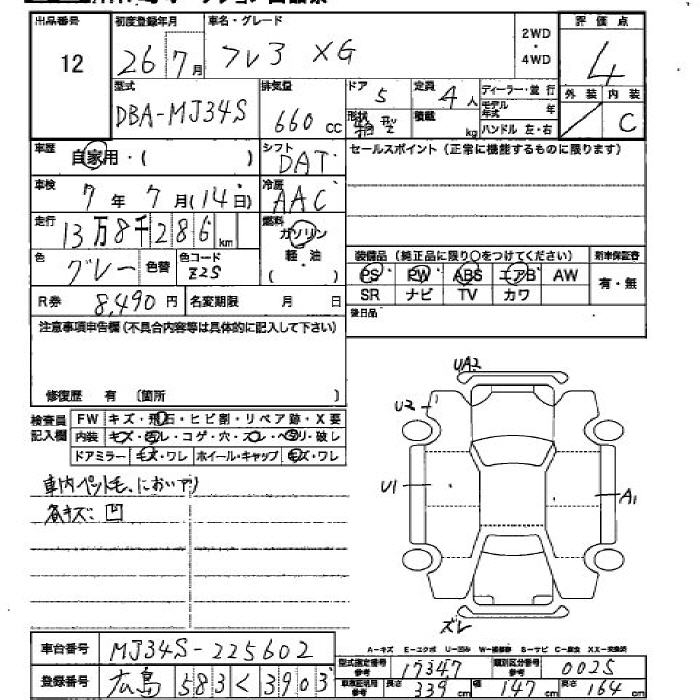 出品番号 初度登録年月 車名・グレード 2WD・4WD 評価点
12 26 7月 フレ3 XG 4
型式 排気量 ドア 定員 ディーラー・並行 外装 内装
DBA-MJ34S 660cc 5 4人 モデル年式 年 C
形状 箱型 積載 kg ハンドル 左・右
車歴 自家用・( ) シフト DAT セールスポイント(正常に機能するものに限ります)
車検 7年7月(14日) 冷房 AAC
走行 13万8千286km 燃料 ガソリン 軽・油 ( )
色 グレー 色替 色コード Z2S
装備品(純正品に限り○をつけてください) 新車保証書
PS PW ABS エアB AW 有・無
SR ナビ TV カワ
R券 8,490円 名変期限 月 日 後日品
注意事項申告欄(不具合内容等は具体的に記入して下さい)
修復歴 有 〔箇所 〕
検査員記入欄 FW キズ・飛石・ヒビ割・リペア跡・X要
内装 キズ・汚レ・コゲ・穴・スレ・ヘタリ・破レ
ドアミラー キズ・ワレ ホイール・キャップ キズ・ワレ
車内ペット毛、においアリ
各キズ凹
UA2
U2
U1
A1
ズレ
A-キズ E-エクボ U-凹み W-補修跡 S-サビ C-腐食 XX-交換済
車台番号 MJ34S-225602
型式指定番号 参考 17347 類別区分番号 参考 0025
登録番号 広島 583 く 3903
参考 長さ 339cm 幅 147cm 高さ 164cm